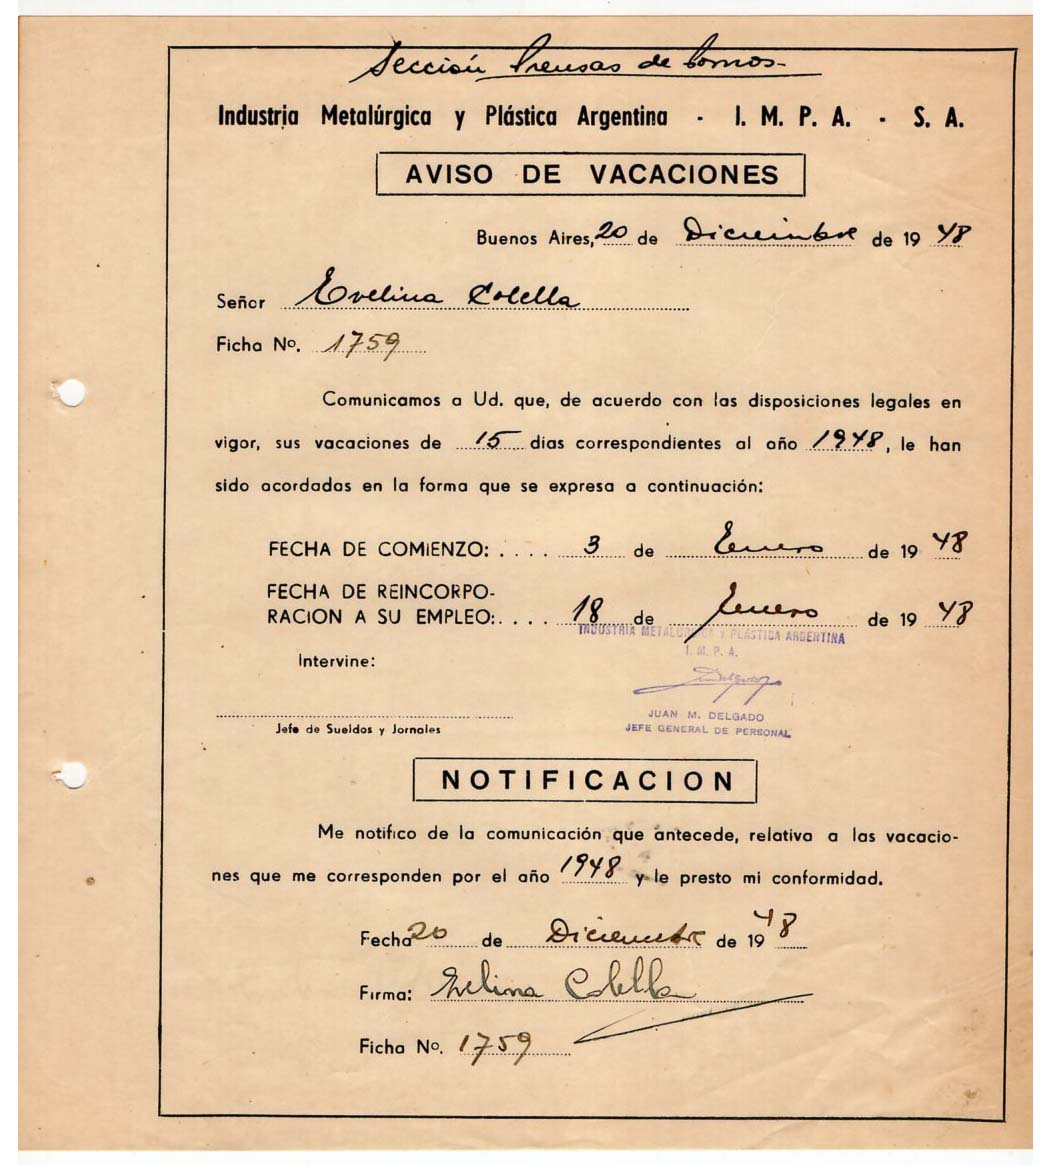 Sección Prensas de Pomos-
Industria Metalúrgica y Plástica Argentina - I. M. P. A. - S. A.
AVISO DE VACACIONES
Buenos Aires, 20 de Diciembre de 19 48
Señor Evelina Colella
Ficha No. 1759
Comunicamos a Ud. que, de acuerdo con las disposiciones legales en
vigor, sus vacaciones de 15 dias correspondientes al año 1948, le han
sido acordadas en la forma que se expresa a continuación:
FECHA DE COMIENZO: . . . . 3 de Enero de 19 48
FECHA DE REINCORPO-
RACION A SU EMPLEO: . . . . 18 de Enero de 19 48
INDUSTRIA METALURGICA Y PLASTICA ARGENTINA
I. M. P. A.
Intervine:
JUAN M. DELGADO
JEFE GENERAL DE PERSONAL
Jefe de Sueldos y Jornales
NOTIFICACION
Me notifico de la comunicación que antecede, relativa a las vacacio-
nes que me corresponden por el año 1948 y le presto mi conformidad.
Fecha 20 de Diciembre de 19 48
Firma: Evelina Colella
Ficha No. 1759